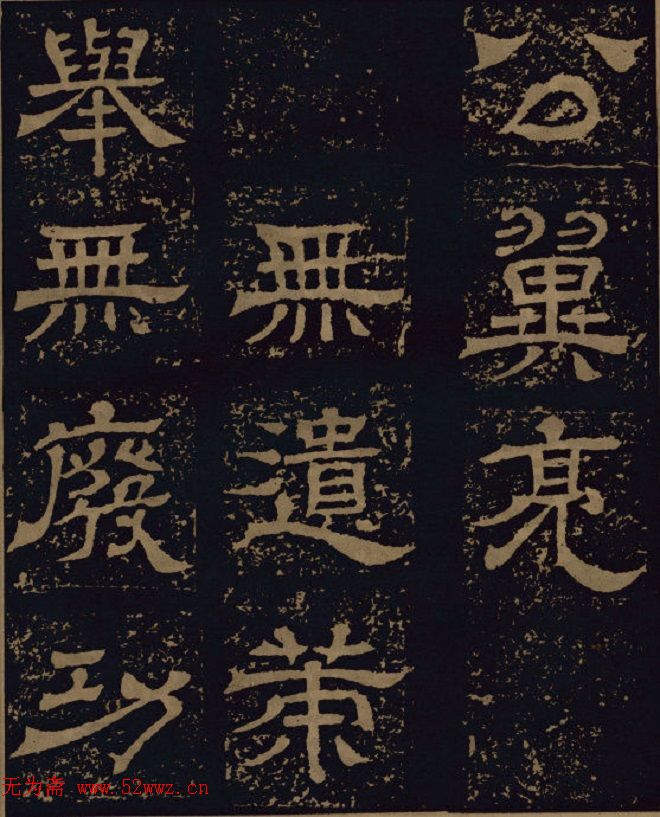 公翼亮
無遺策
舉無廢功
无为斋 www.52wwz.cn